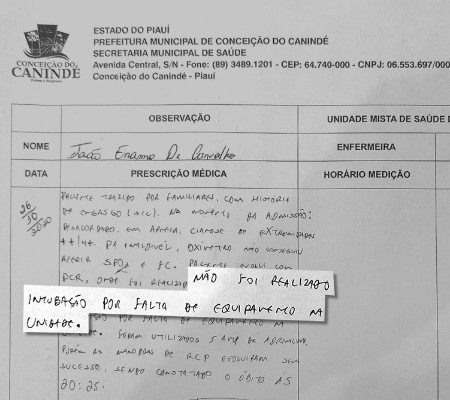 ESTADO DO PIAUÍ
PREFEITURA MUNICIPAL DE CONCEIÇÃO DO CANINDÉ
SECRETARIA MUNICIPAL DE SAÚDE
Avenida Central, S/N - Fone: (89) 3489.1201 - CEP: 64.740-000 - CNPJ: 06.553.697/000
Conceição do Canindé - Piauí
CONCEIÇÃO DO
CANINDÉ
OBSERVAÇÃO
UNIDADE MISTA DE SAÚDE D
NOME
João De Carvalho
ENFERMEIRA
DATA
PRESCRIÇÃO MÉDICA
HORÁRIO MEDIÇÃO
26/10/2020
PACIENTE TRAZIDO POR FAMILIARES, COM HISTÓRIA
DE (SIC). NO MOMENTO DA ADMISSÃO:
DESACORDADO, EM APNEIA, CIANOSE DE EXTREMIDADES
++/4+. PA INAUDÍVEL, OXÍMETRO NÃO CONSEGUIU
AFERIR SPO2 E FC. PACIENTE EVOLUI COM
PCR, ONDE FOI REALIZADO
NÃO FOI REALIZADO
INTUBAÇÃO POR FALTA DE EQUIPAMENTO NA
UNIDADE.
FORAM UTILIZADOS 5 AMP DE ADRENALINA,
PORÉM AS MANOBRAS DE RCP EVOLUIRAM SEM
SUCESSO, SENDO CONSTATADO O ÓBITO ÀS
20:25.